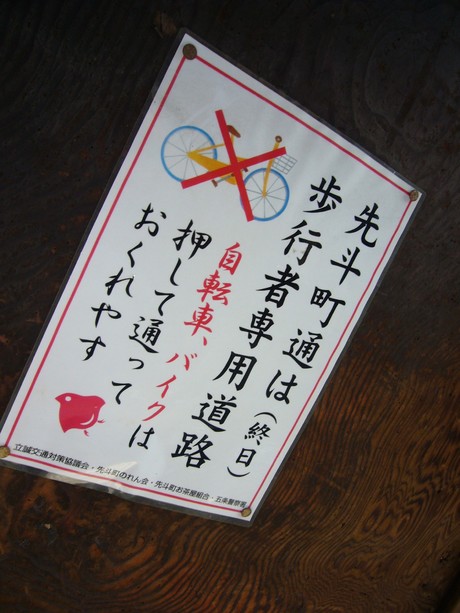 先斗町通は(終日)
歩行者専用道路
自転車、バイクは
押して通って
おくれやす
立誠交通対策協議会・先斗町のれん会・先斗町お茶屋組合・五条警察署